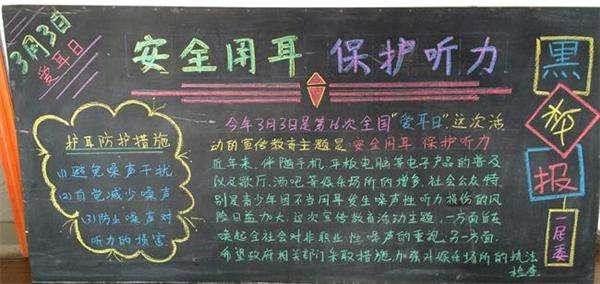 3月3日
爱耳日
安全用耳 保护听力
护耳防护措施
(1)避免噪声干扰
(2)自觉减少噪声
(3)防止噪声对
听力的损害
今年3月3日是第16次全国“爱耳日”,这次活
动的宣传教育主题是:安全用耳 保护听力
近年来,伴随手机,平板电脑等电子产品的普及
以及歌厅,酒吧等娱乐场所的增多,社会公众特
别是青少年因不当用耳发生噪声性听力损伤的风
险日益加大,这次宣传教育活动主题,一方面旨在
唤起全社会对非职业性噪声的重视,另一方面
希望政府相关部门采取措施,加强对娱乐场所的执法
检查
黑
板
报
一居委